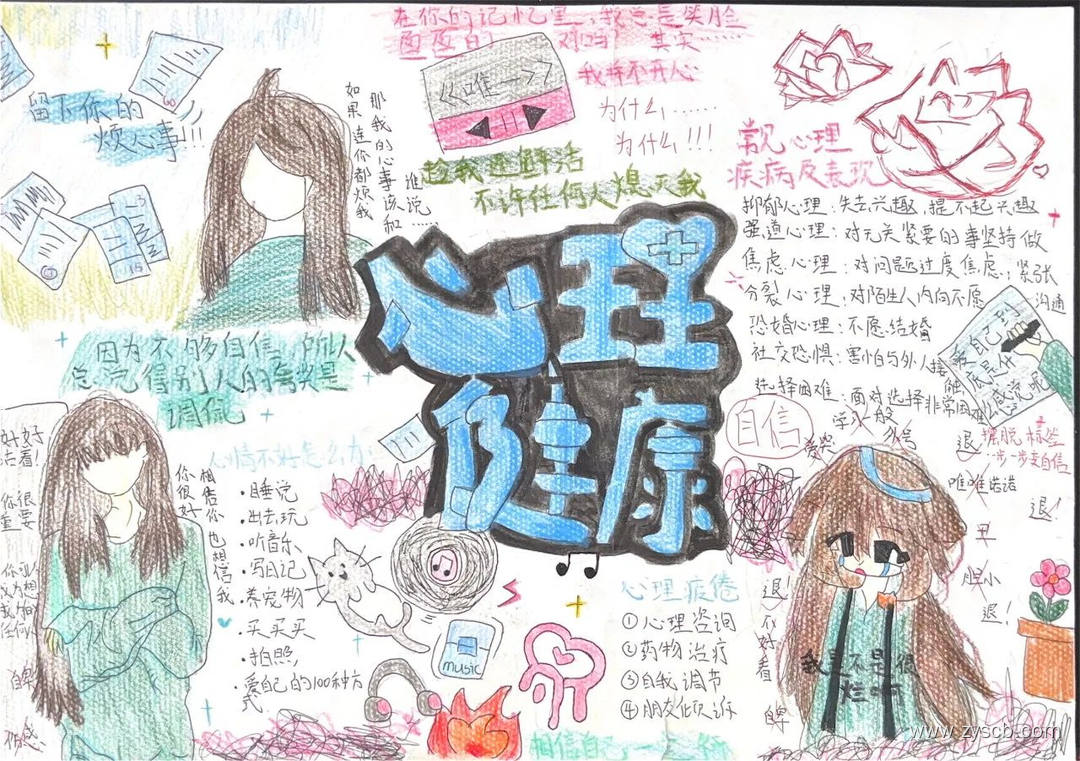 在你的记忆里,我总是笑脸
面的 对吗? 其实……
我并不开心
为什么……
为什么!!!
<<唯一>>
留下你的
烦心事!!!
如果连你都烦我
那我的心事该和
谁说……
趁我还鲜活
不许任何人熄灭我
常见心理
疾病及表现
抑郁心理:失去兴趣,提不起兴趣
强道心理:对无关紧要的事坚持做
焦虑心理:对问题过度焦虑,紧张
分裂心理:对陌生人内向不愿
沟通
恐婚心理:不愿结婚
社交恐惧:害怕与外人接
触
选择困难:面对选择非常困难
心理
健康
因为不够自信,所以
总觉得别人的夸奖是
调侃
好好
活着!
你很
重要
自卑
你很好
相信你也想信我
心情不好怎么办
·睡说
·出去玩
·听音乐
·写日记
·养宠物
·买买买
·拍照
·爱自己的100种方
式
music
心理疲倦
①心理咨询
②药物治疗
③自我调节
④朋友倾诉
相信自己一
自信
外号
摆脱标签
一步一步走自信
退!
唯唯诺诺
退!
丑
胆小
退!
退!
不好看
自卑
我是不是很
烂啊
www.zyscb.com